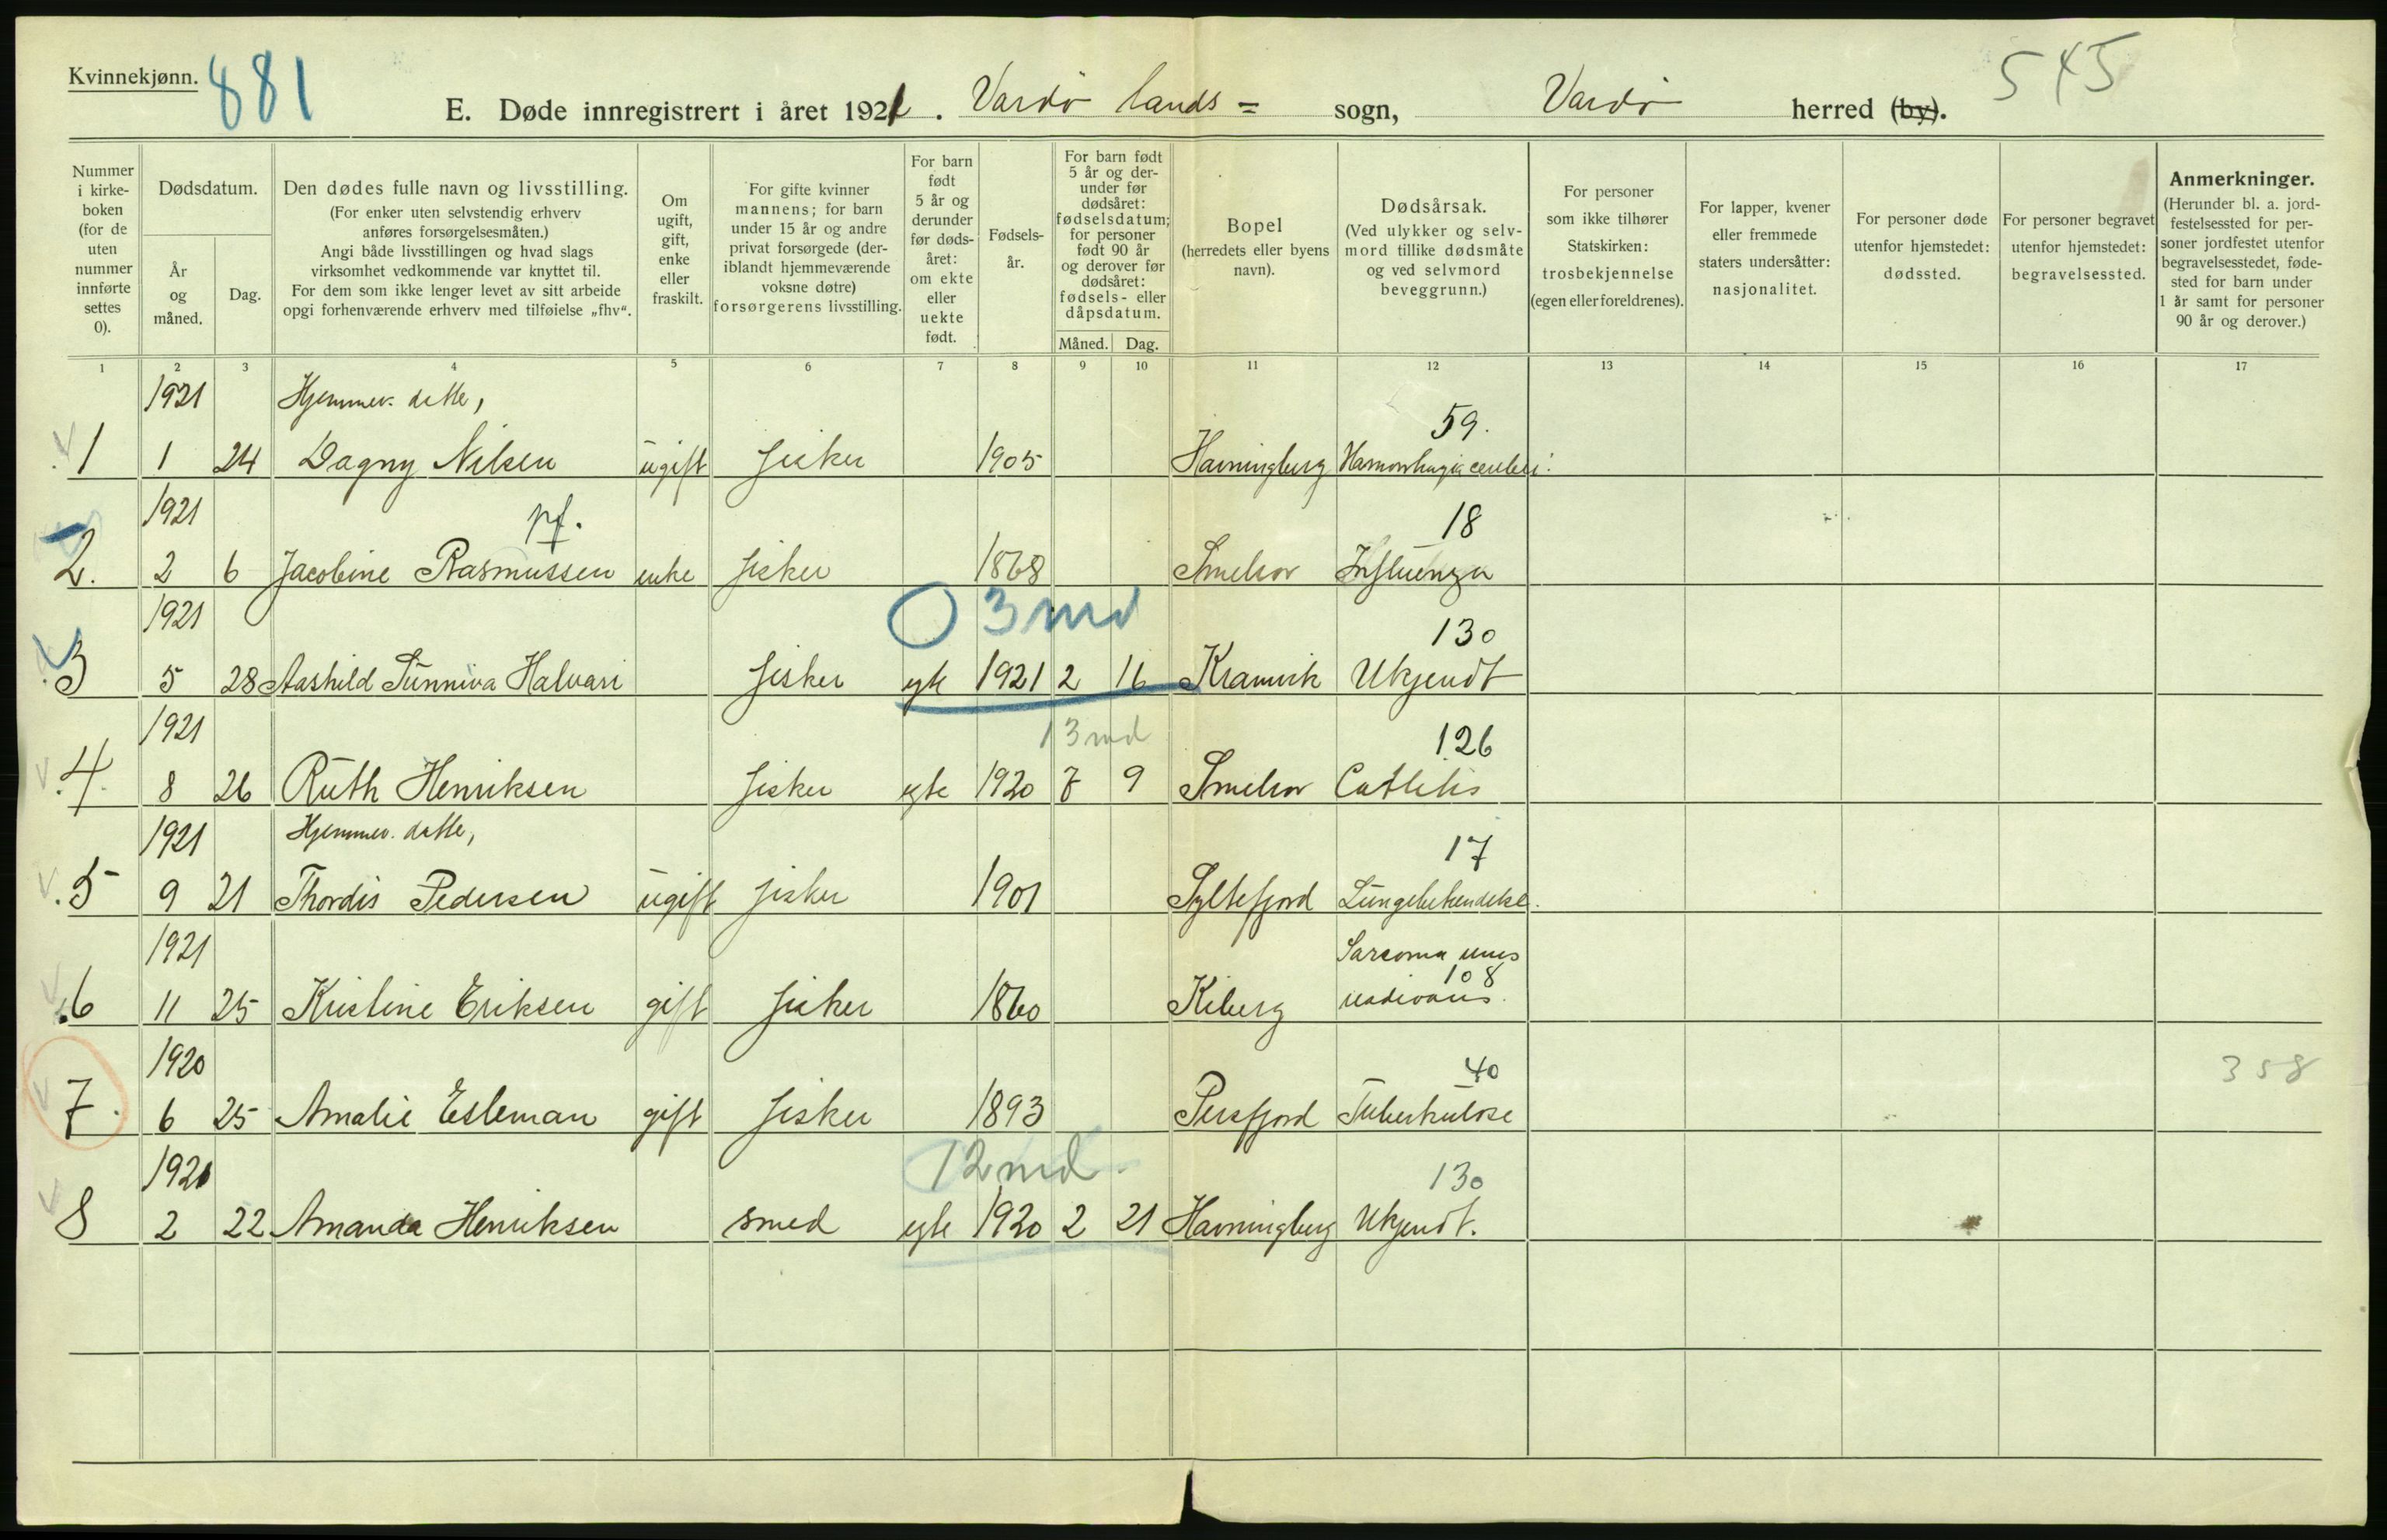 Kvinnekjønn.
881
545
E. Døde innregistrert i året 1921. Vardø lands = sogn, Vardø herred (by).
Nummer i kirke-boken (for de uten nummer innførte settes 0).
Dødsdatum.
År og måned.
Dag.
Den dødes fulle navn og livsstilling.
(For enker uten selvstendig erhverv anføres forsørgelsesmåten.)
Angi både livsstillingen og hvad slags virksomhet vedkommende var knyttet til.
For dem som ikke lenger levet av sitt arbeide opgi forhenværende erhverv med tilføielse „fhv“.
Om ugift, gift, enke eller fraskilt.
For gifte kvinner mannens; for barn under 15 år og andre privat forsørgede (der-iblandt hjemmeværende voksne døtre) forsørgerens livsstilling.
For barn født 5 år og derunder før døds-året: om ekte eller uekte født.
Fødsels-år.
For barn født 5 år og der-under før dødsåret: fødselsdatum; for personer født 90 år og derover før dødsåret: fødsels- eller dåpsdatum.
Måned. Dag.
Bopel (herredets eller byens navn).
Dødsårsak. (Ved ulykker og selv-mord tillike dødsmåte og ved selvmord beveggrunn.)
For personer som ikke tilhører Statskirken: trosbekjennelse (egen eller foreldrenes).
For lapper, kvener eller fremmede staters undersåtter: nasjonalitet.
For personer døde utenfor hjemstedet: dødssted.
For personer begravet utenfor hjemstedet: begravelsessted.
Anmerkninger. (Herunder bl. a. jord-festelsessted for per-soner jordfestet utenfor begravelsesstedet, føde-sted for barn under 1 år samt for personer 90 år og derover.)
1 2 3 4 5 6 7 8 9 10 11 12 13 14 15 16 17
1921 Hjemmev. datte, 59.
1 1 24 Dagny Nilsen ugift fisker 1905 Havningberg Hamorrhagia cerebri.
1921 pf. 18
2. 2 6 Jacobine Rasmussen enke fisker 1868 Smelror Influenza
1921 0 3 md 130
3 5 28 Aashild Sunniva Halvari fisker egte 1921 2 16 Kramvik Ukjendt
1921 13 md 126
4. 8 26 Ruth Henriksen fisker egte 1920 7 9 Smelror
1921 Hjemmev. datte, 17
5 9 21 Thordis Pedersen ugift fisker 1901 Syltefjord Lungebetendelse.
1921 Sarcoma
108
6 11 25 Kristine Eriksen gift fisker 1860 Kiberg
1920 40 358
7. 6 25 Amalie Esleman gift fisker 1893 Persfjord Tuberkulose
1921 12 md 130
8 2 22 Amanda Henriksen smed egte 1920 2 21 Havningberg Ukjendt.